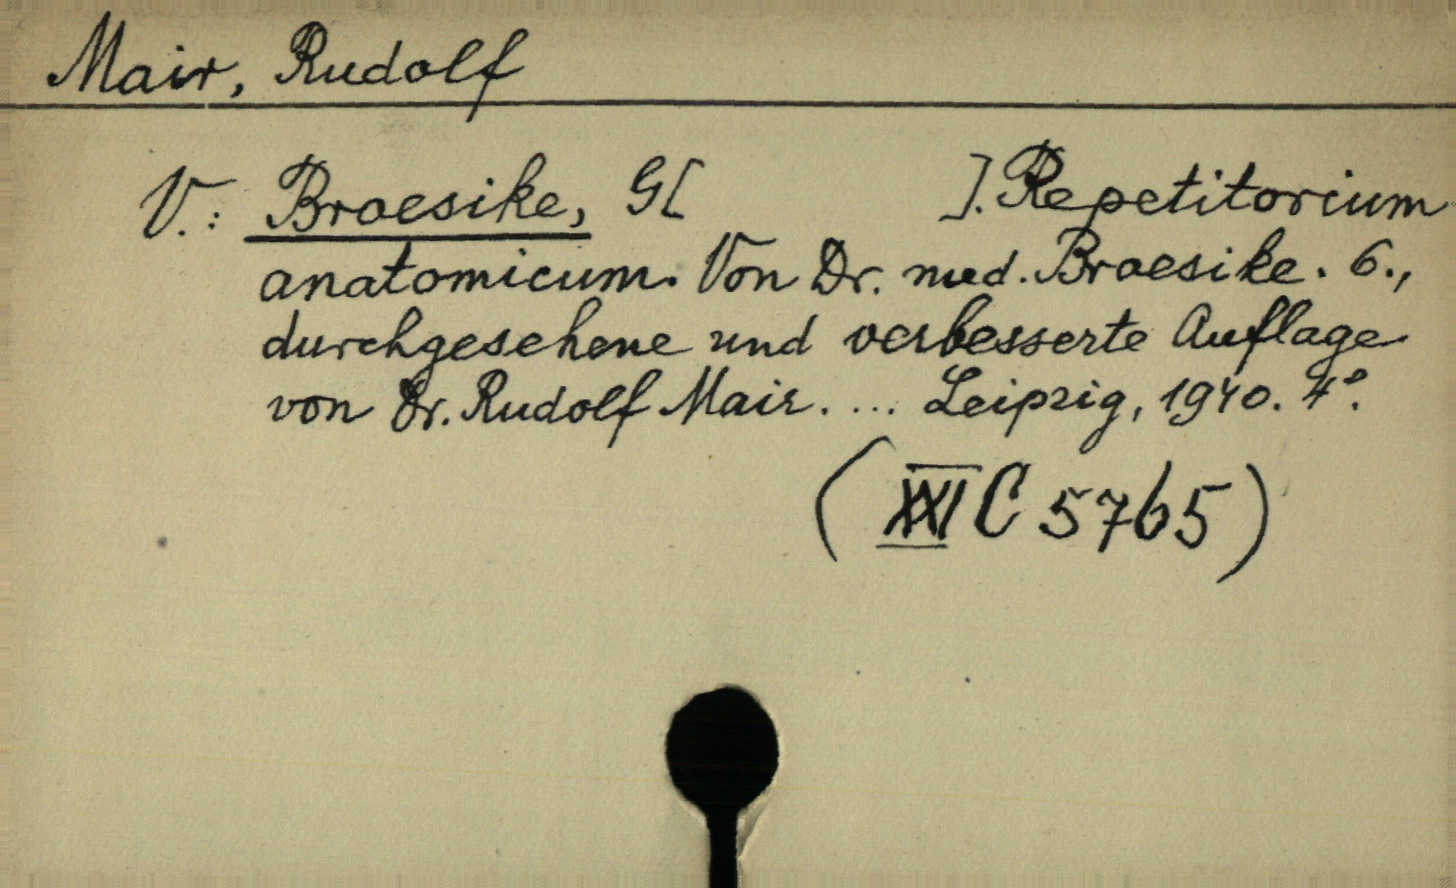 Mair, Rudolf
V.: Broesike, G[ ]. Repetitorium
anatomicum. Von Dr. med. Broesike. 6.,
durchgesehene und verbesserte Auflage
von Dr. Rudolf Mair. ... Leipzig, 1940. 4°.
(XXI C 5765)